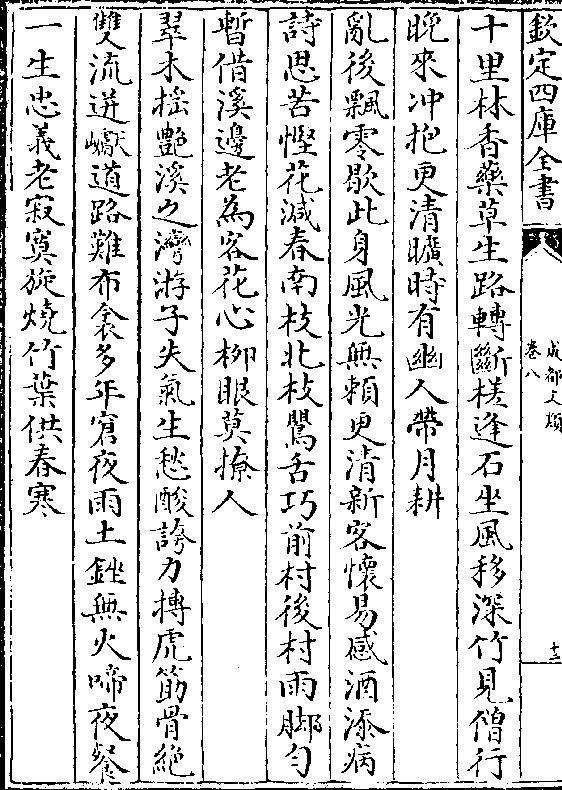 欽定四庫全書
成都文類
卷八
十二
十里林香藥草生路轉斷槎逢石坐風移深竹見僧行
晚來冲抱更清曠時有幽人帶月耕
亂後飄零歇此身風光無賴更清新客懷易感酒添病
詩思苦慳花減春南枝北枝鶯舌巧前村後村雨脚勻
暫借溪邊老為客花心柳眼莫撩人
翠木揺艷溪之灣游子失氣生愁酸誇力搏虎筋骨絶
雙流迸巘道路難布衾多年窘夜雨土銼無火啼夜餐
一生忠義老寂寞旋燒竹葉供春寒